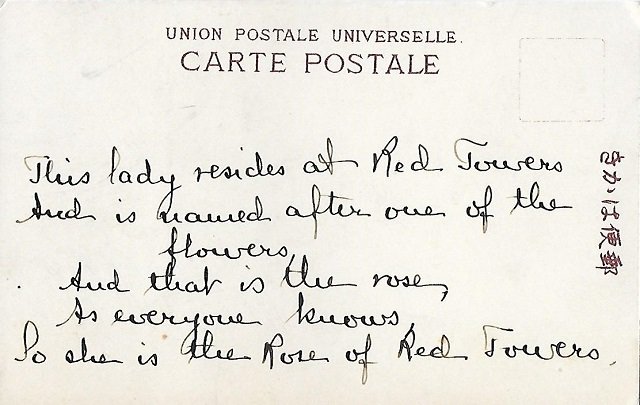 UNION POSTALE UNIVERSELLE.
CARTE POSTALE
This lady resides at Red Towers
And is named after one of the
flowers,
And that is the rose,
As everyone knows,
So she is the Rose of Red Towers.
きかは便郵